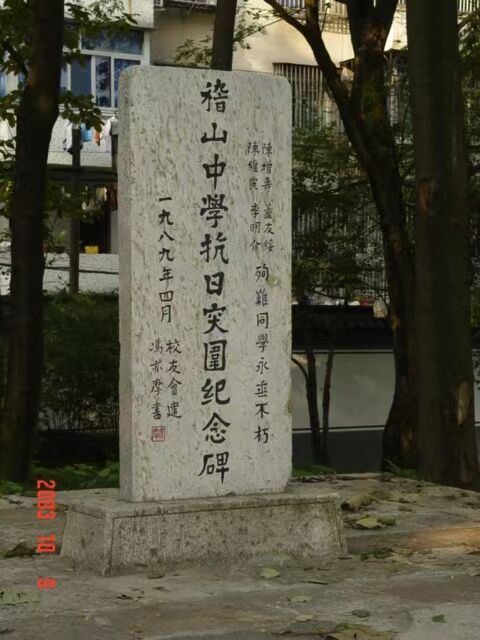 陳增壽 蓋友綏
陳維寅 李明介
殉難同學永垂不朽
稽山中學抗日突圍纪念碑
一九八九年四月
校友會建
馮亦摩書
2003 10 9